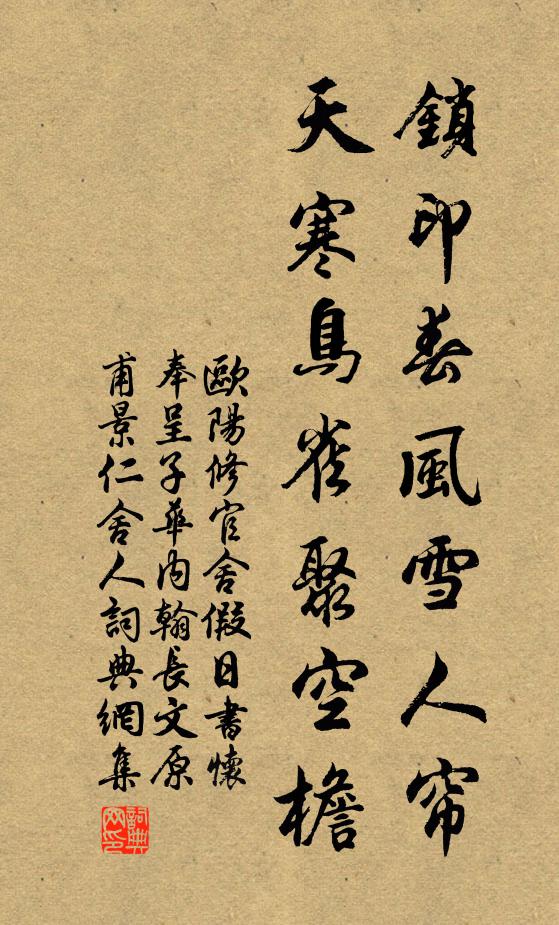 鎖印春風雪人帘
天寒鳥雀聚空檐
歐陽修官舍假日書懷
奉呈子華內翰長文原
甫景仁舍人詞典網集
詞典網印